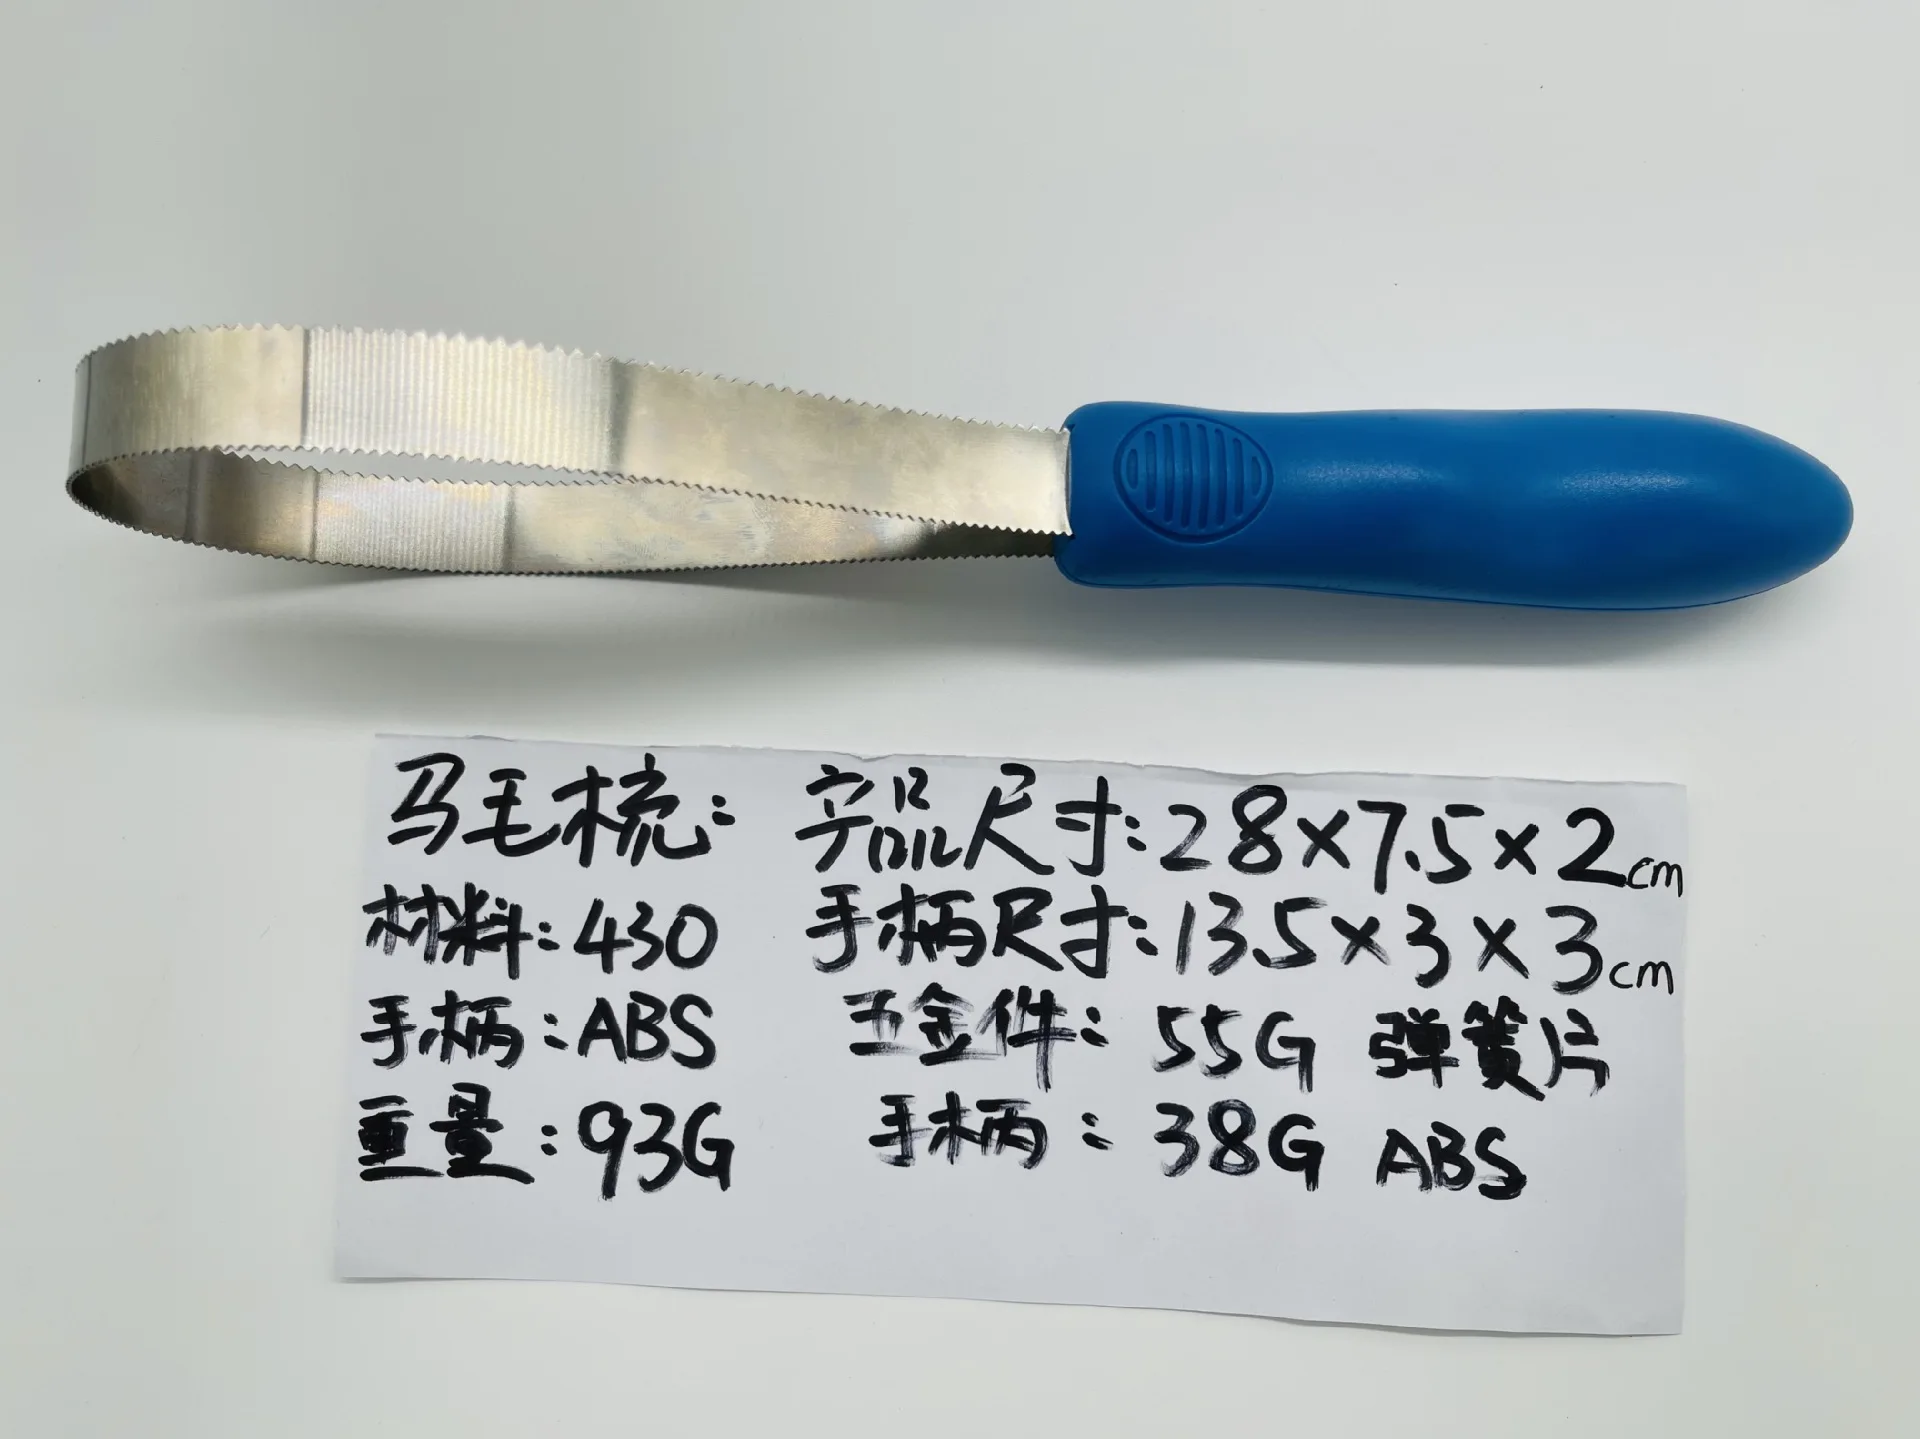 马毛梳: 产品尺寸:28×7.5×2cm
材料:430 手柄尺寸:13.5×3×3cm
手柄:ABS 五金件:55G 弹簧片
重量:93G 手柄:38G ABS